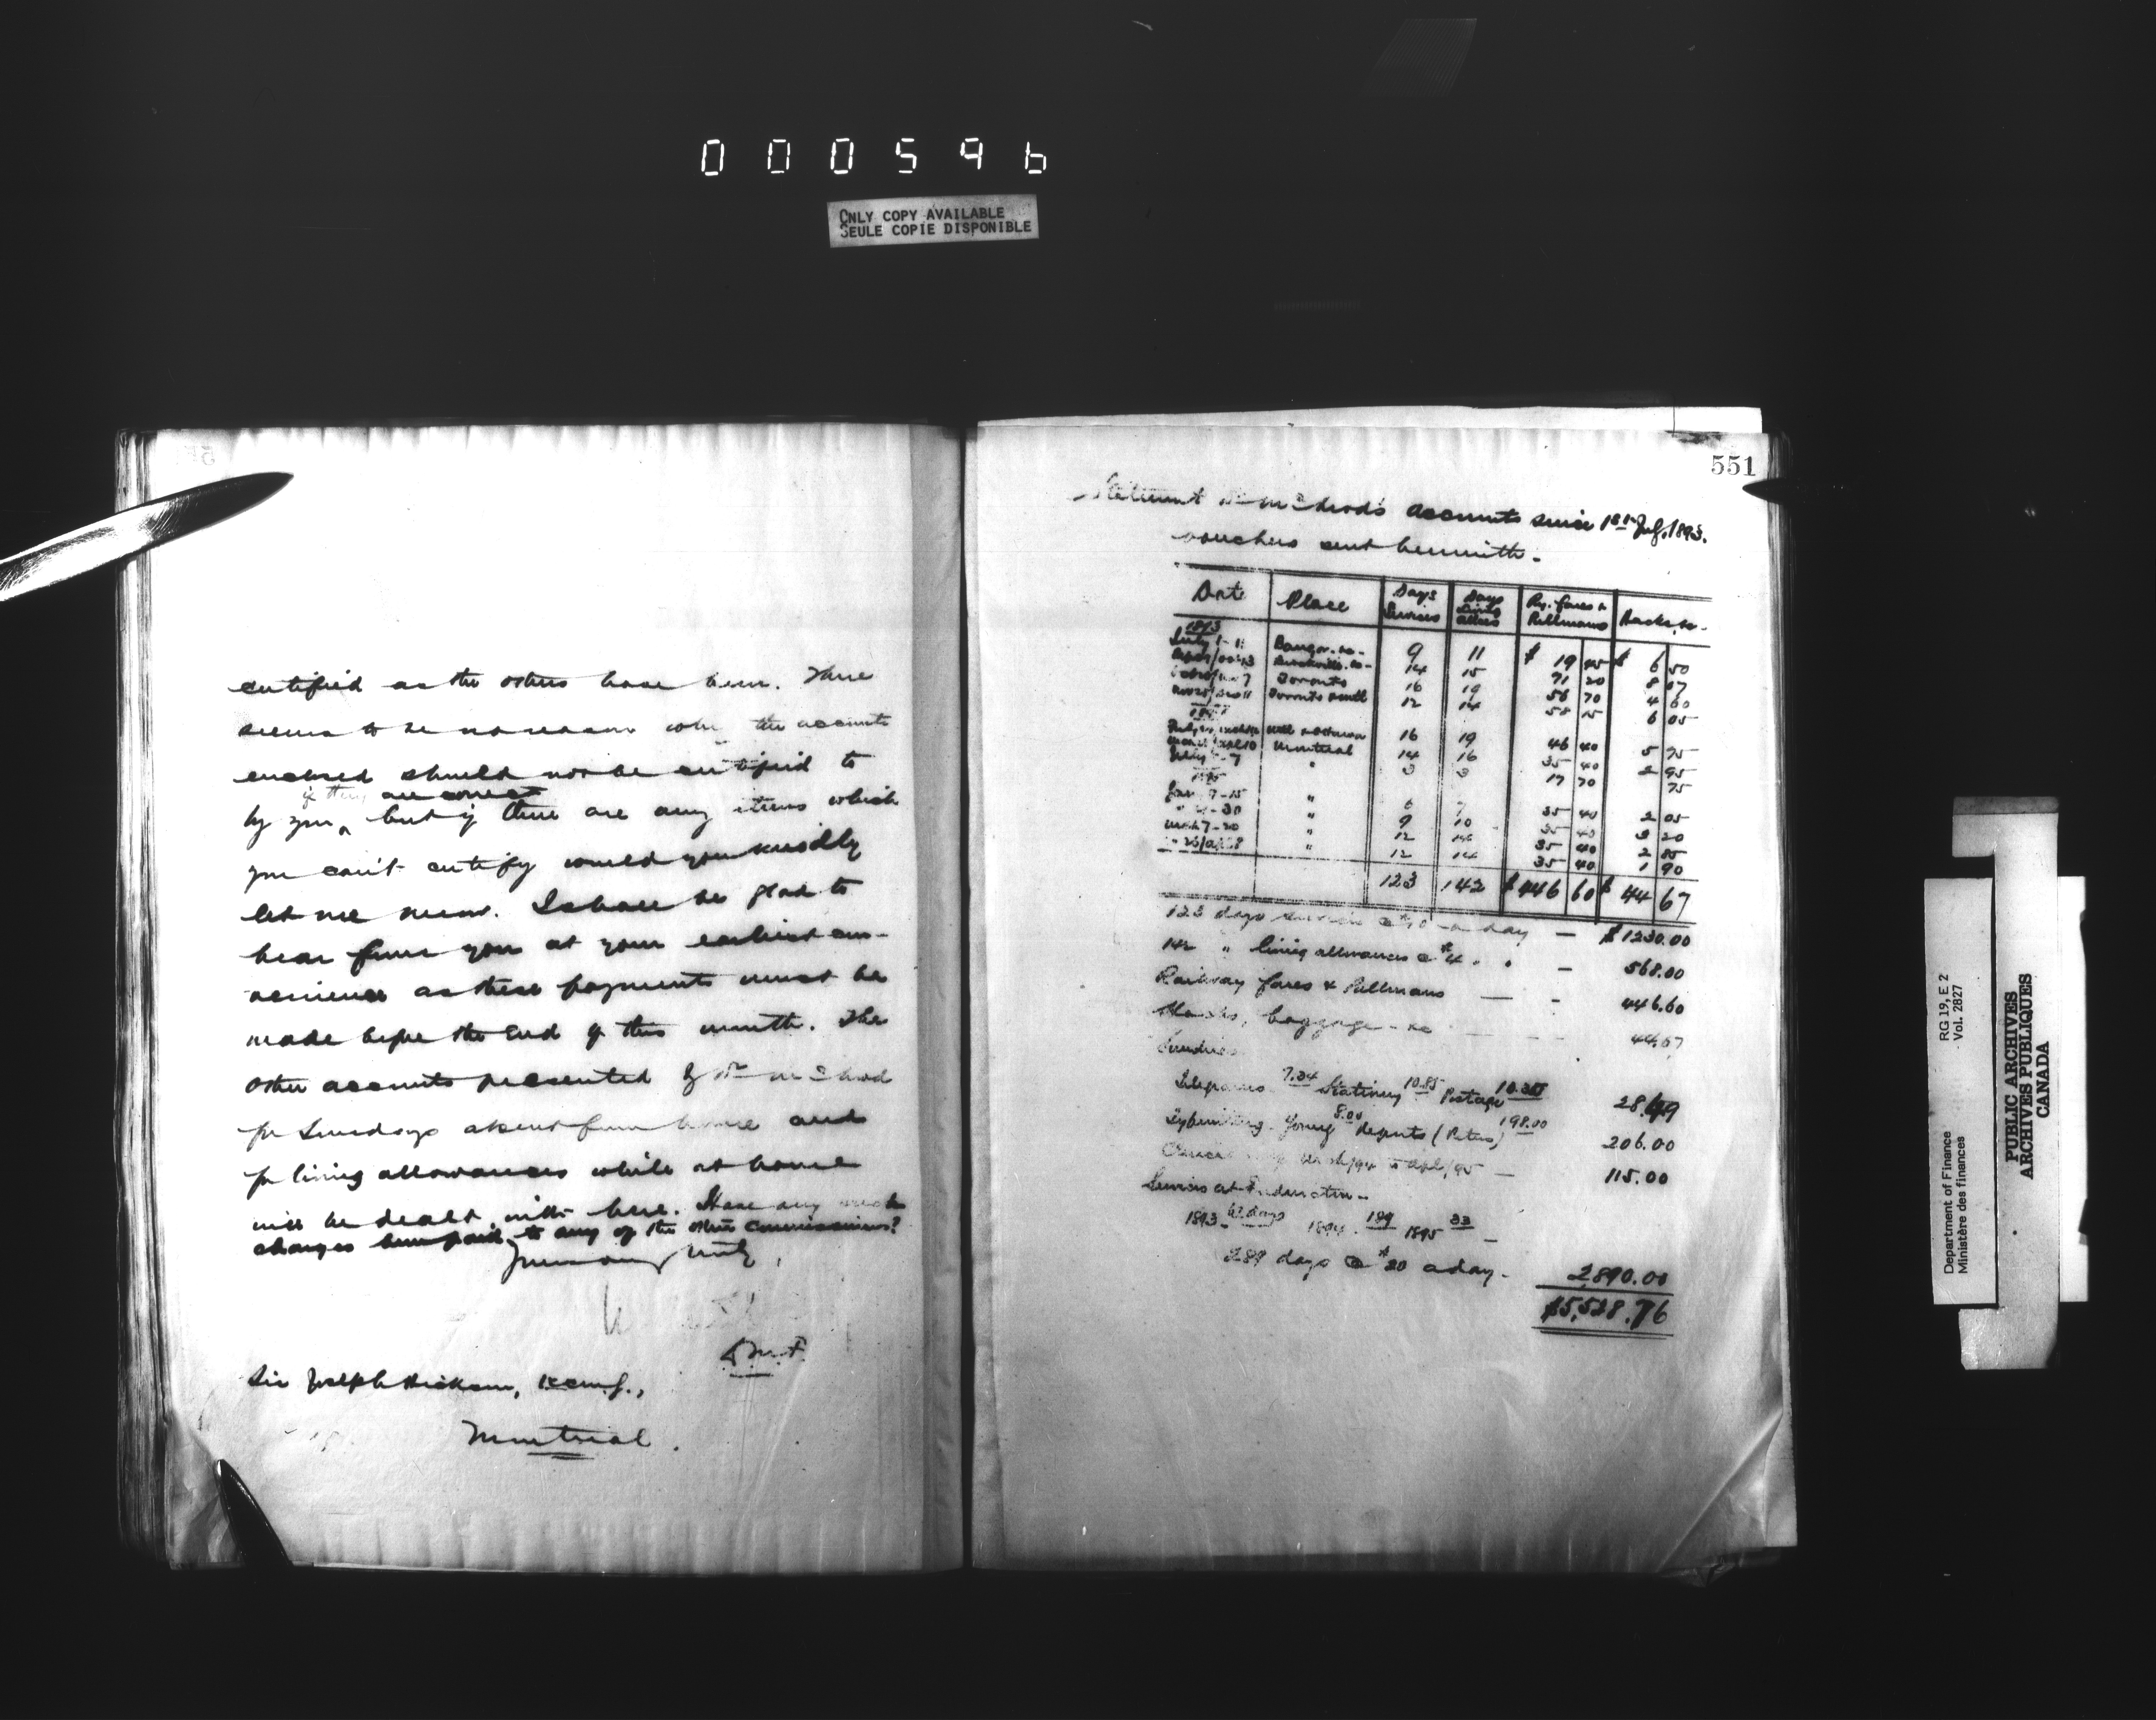 000596
ONLY COPY AVAILABLE
SEULE COPIE DISPONIBLE
certified as the others have been. There
seems to be no reason why the accounts
enclosed should not be certified to
if they are correct
by you, but if there are any items which
you can't certify would you kindly
let me know. I shall be glad to
hear from you at your earliest con-
venience as these payments must be
made before the end of this month. The
other accounts presented by Dr McLeod
for Sundays absent from home and
for living allowances while at home
will be dealt with here. Have any such
charges been paid to any of the other commissioners?
Yours very truly,
D.M.F.
Sir Joseph Hickson, K.C.M.G.,
Montreal.
551
Statement Dr McLeod's accounts since 1st July, 1893.
vouchers sent herewith.
Date Place Days Services Days living allces Ry. fares & Pullmans Hacks, &c.
1893
July 1-11 Bangor &c 9 11 $ 19 45 $ 6 50
Brockville &c 14 15 91 20 8 67
Toronto 16 19 56 70 4 60
Toronto & Mtl 12 14 58 15 6 05
1894
16 19 46 40 5 95
Montreal 14 16 35 40 2 95
July 5-7 " 3 3 17 70 75
1895
Jany 9-15 " 6 7 35 40 2 05
" -30 " 9 10 35 40 3 20
Mch 7-20 " 12 14 35 40 2 85
" 12 14 35 40 1 90
123 142 $446 60 $ 44 67
123 days service @ $10 a day — $1230.00
142 " living allowances @ $4 " " — 568.00
Railway fares & Pullmans — - 446.60
Hacks, baggage - &c 44.67
Sundries
Telegrams 7.34 Stationery 10.85 Postage 10.30 28.49
Typewriting - Young 8.00 Reports (Peters) 198.00 206.00
Mch/94 to Apl/95 — 115.00
Services at Fredericton -
1893 - 67 days 1894 . 189 1895 33 -
289 days @ $10 a day - 2890.00
$5,528.76
RG 19, E 2
Vol. 2827
Department of Finance
Ministère des finances
PUBLIC ARCHIVES
ARCHIVES PUBLIQUES
CANADA